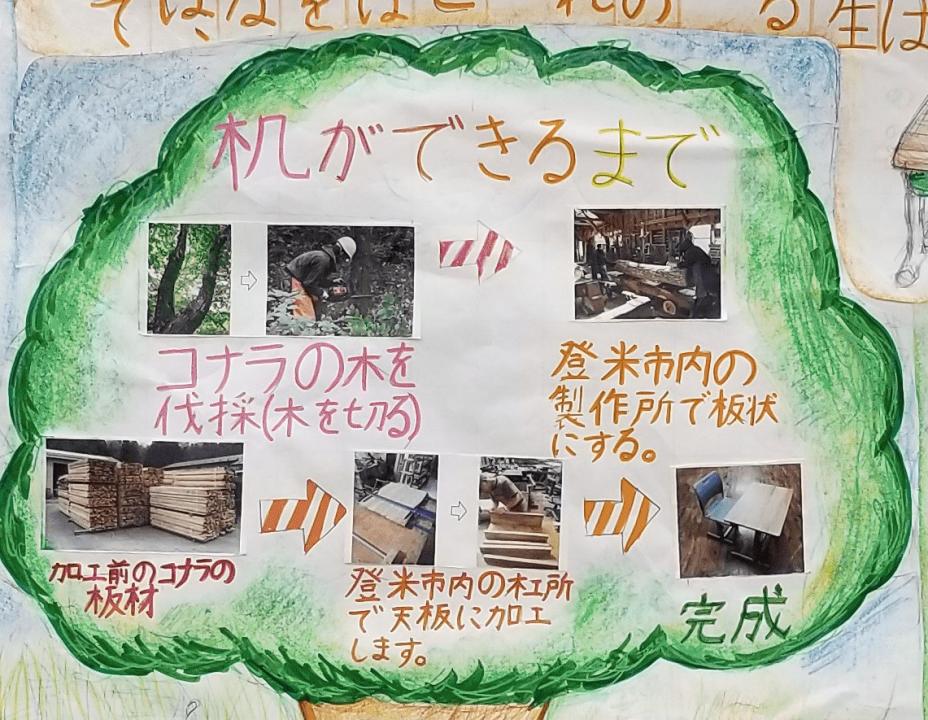 机ができるまで
コナラの木を
伐採(木を切る)
登米市内の
製作所で板状
にする。
加工前のコナラの
板材
登米市内の木工所
で天板に加工
します。
完成